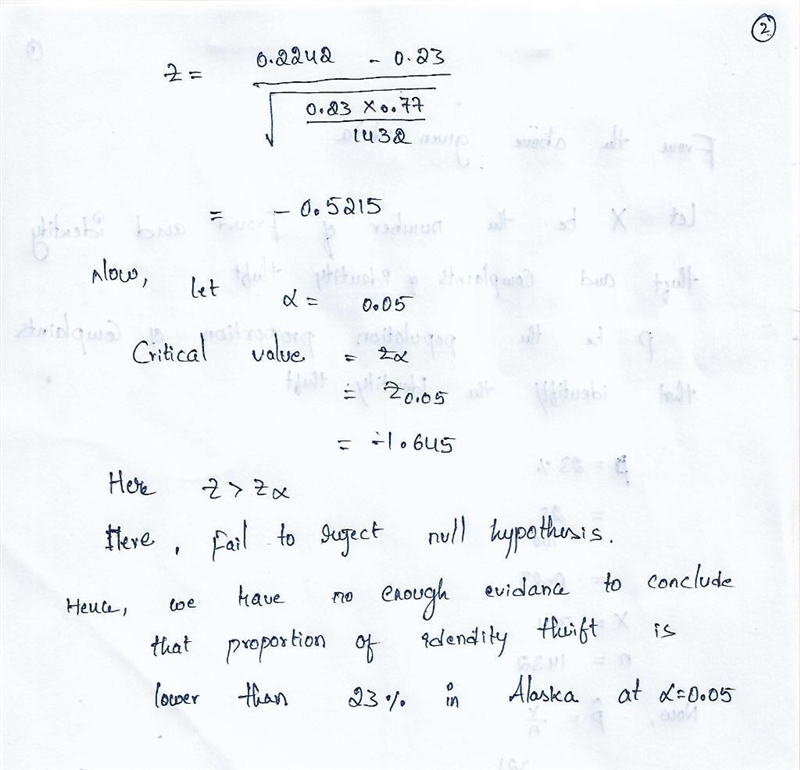 2
Z = 0.2242 - 0.23
√ 0.23 X 0.77
1432
= - 0.5215
Now, let α = 0.05
Critical value = zα
= Z0.05
= -1.645
Here Z > Zα
Here, Fail to reject null hypothesis.
Hence, we have no enough evidance to conclude
that proportion of idendity thift is
lower than 23% in Alaska at α=0.05